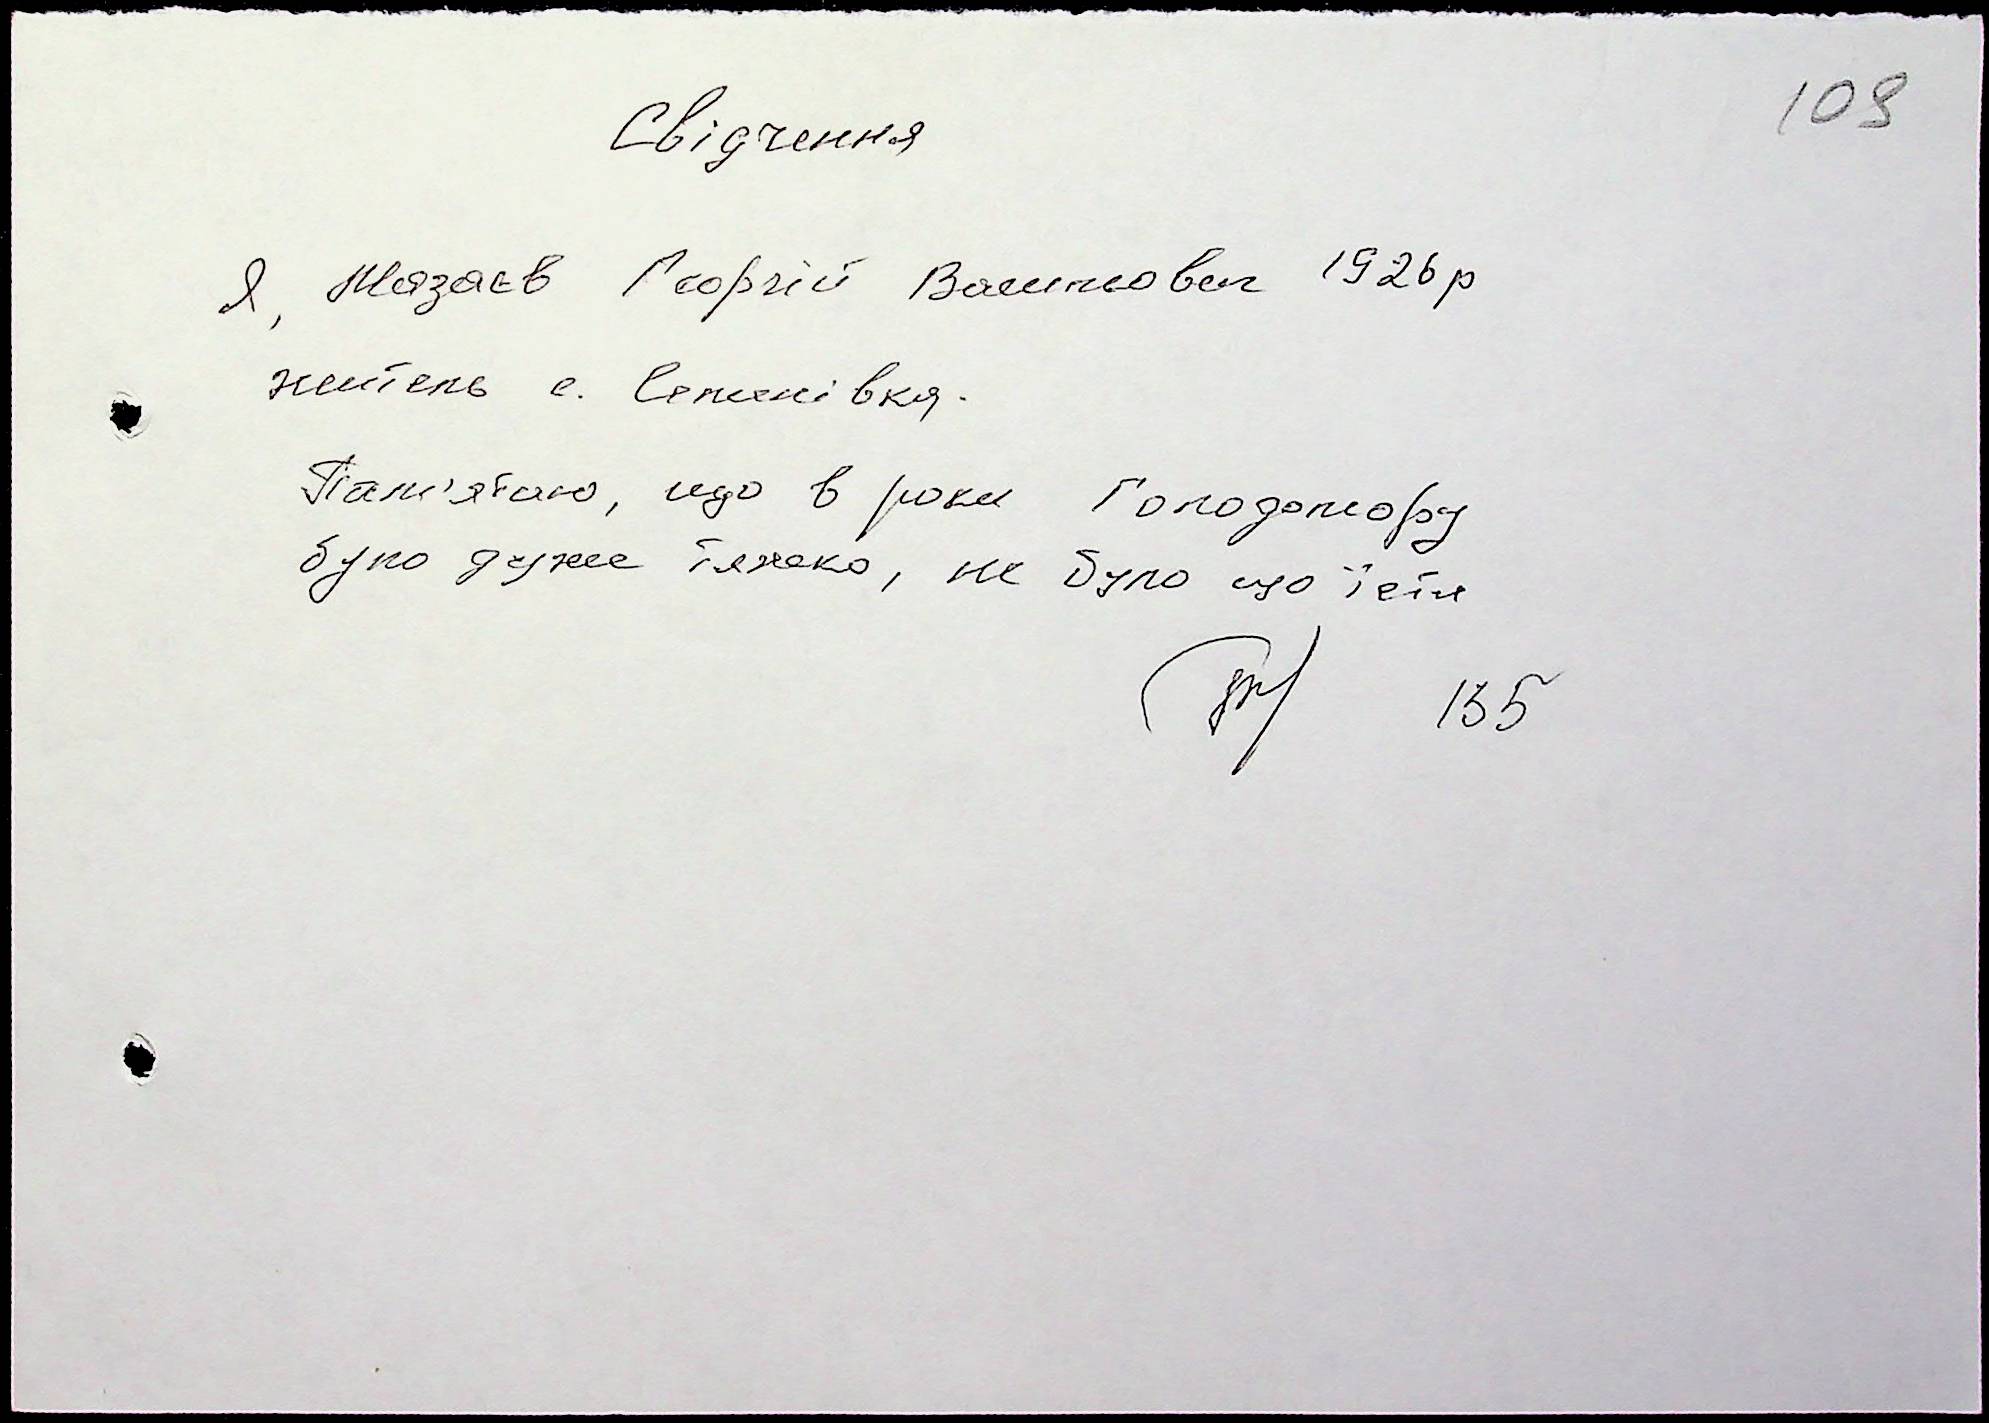 109
Свідчення
Я, Мазаєв Георгій 1926р
житель с.
Пам'ятаю, що в роки Голодомору
було дуже тяжко, не було що їсти
135